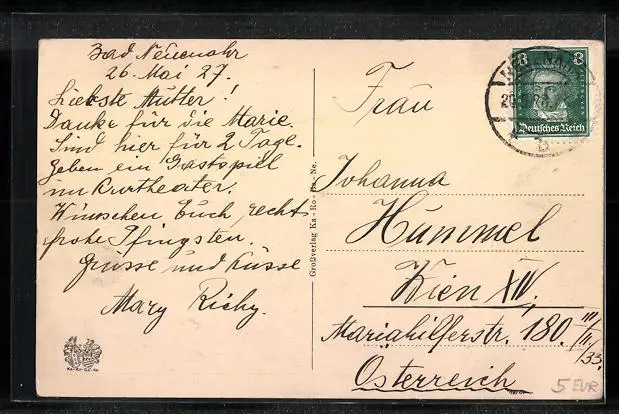 Bad Neuenahr
26. Mai 27.
Liebste Mutter!
Danke für die Marie.
Sind hier für 2 Tage.
Geben ein Gastspiel
im Kurtheater.
Wünschen Euch recht
frohe Pfingsten.
Grüsse und Küsse
Mary Richy.
Großverlag Ka-Ro-Ba-Ne.
8 8
Deutsches Reich
b
Frau
Johanna
Hummel
Wien XIV,
Mariahilferstr. 180. III/II/33.
Österreich
5 EUR